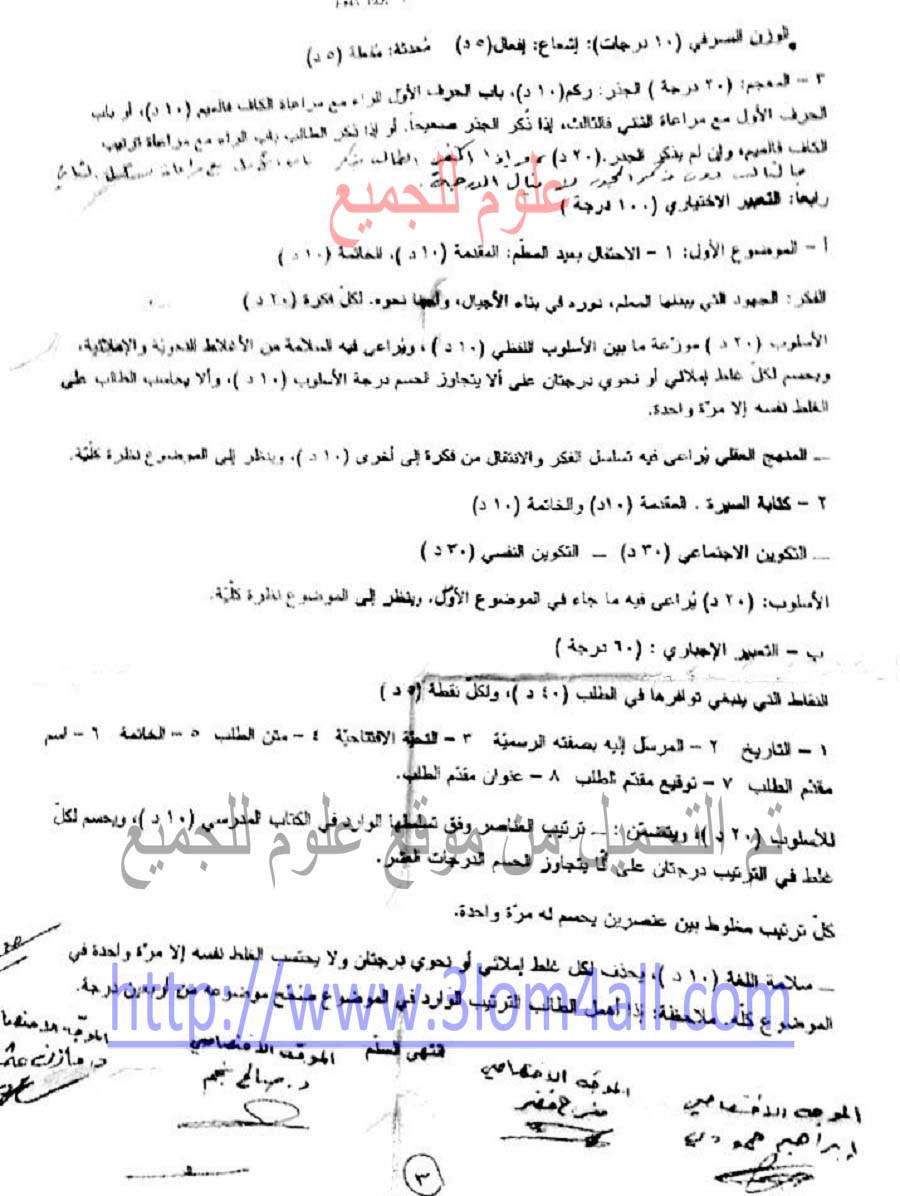 الوزن الصرفي (١٠ درجات): إشعاع: إفعال (٥ د) مُحدثة: مُفعلة (٥ د)
٣ – المعجم: (٢٠ درجة) الجذر: ركم (١٠ د)، باب الحرف الأول الراء مع مراعاة الكاف فالميم (١٠ د)، أو باب
الحرف الأول مع مراعاة الثاني فالثالث، إذا ذُكر الجذر صحيحاً. أو إذا ذكر الطالب باب الراء مع مراعاة ترتيب
الكاف فالميم، وإن لم يذكر الجذر. (٢٠ د)
علوم للجميع
رابعاً: التعبير الاختياري (١٠٠ درجة)
أ – الموضوع الأول: ١ – الاحتفال بعيد المعلّم: المقدمة (١٠ د)، الخاتمة (١٠ د)
الفكر: الجهود التي يبذلها المعلم، دوره في بناء الأجيال، واجبنا نحوه. لكلّ فكرة (٢٠ د)
الأسلوب (٢٠ د) موزّعة ما بين الأسلوب اللفظي (١٠ د)، ويُراعى فيه السلامة من الأغلاط النحويّة والإملائيّة،
ويحسم لكلّ غلط إملائي أو نحوي درجتان على ألا يتجاوز الحسم درجة الأسلوب (١٠ د)، وألا يحاسب الطالب على
الغلط نفسه إلا مرّة واحدة.
– المنهج العقلي يُراعى فيه تسلسل الفكر والانتقال من فكرة إلى أخرى (١٠ د)، وينظر إلى الموضوع نظرة كلّيّة.
٢ – كتابة السيرة . المقدمة (١٠د) والخاتمة (١٠ د)
– التكوين الاجتماعي (٣٠ د) – التكوين النفسي (٣٠ د)
الأسلوب: (٢٠ د) يُراعى فيه ما جاء في الموضوع الأوّل، وينظر إلى الموضوع نظرة كلّيّة.
ب – التعبير الإجباري : (٦٠ درجة)
النقاط التي ينبغي توافرها في الطلب (٤٠ د)، ولكلّ نقطة (٥ د)
١ – التاريخ ٢ – المرسل إليه بصفته الرسميّة ٣ – التحيّة الافتتاحيّة ٤ – متن الطلب ٥ – الخاتمة ٦ – اسم
مقدّم الطلب ٧ – توقيع مقدّم الطلب ٨ – عنوان مقدّم الطلب.
تم التحميل من موقع علوم للجميع
للأسلوب (٢٠ د)، ويتضمّن : – ترتيب العناصر وفق تسلسلها الوارد في الكتاب المدرسي (١٠ د)، ويحسم لكلّ
غلط في الترتيب درجتان على ألّا يتجاوز الحسم الدرجات العشر.
كلّ ترتيب مغلوط بين عنصرين يحسم له مرّة واحدة.
– سلامة اللغة (١٠ د)، يحذف لكل غلط إملائي أو نحوي درجتان ولا يحتسب الغلط نفسه إلا مرّة واحدة في
الموضوع كلّه. ملاحظة: إذا أهمل الطالب الترتيب الوارد في الموضوع صُحّح موضوعه من أربعين درجة.
http://www.3lom4all.com
انتهى السلم
الموجه الاختصاصي
الموجه الاختصاصي
د. صالح نجم
الموجه الاختصاصي
الموجه الاختصاصي
إبراهيم حمودي
٣